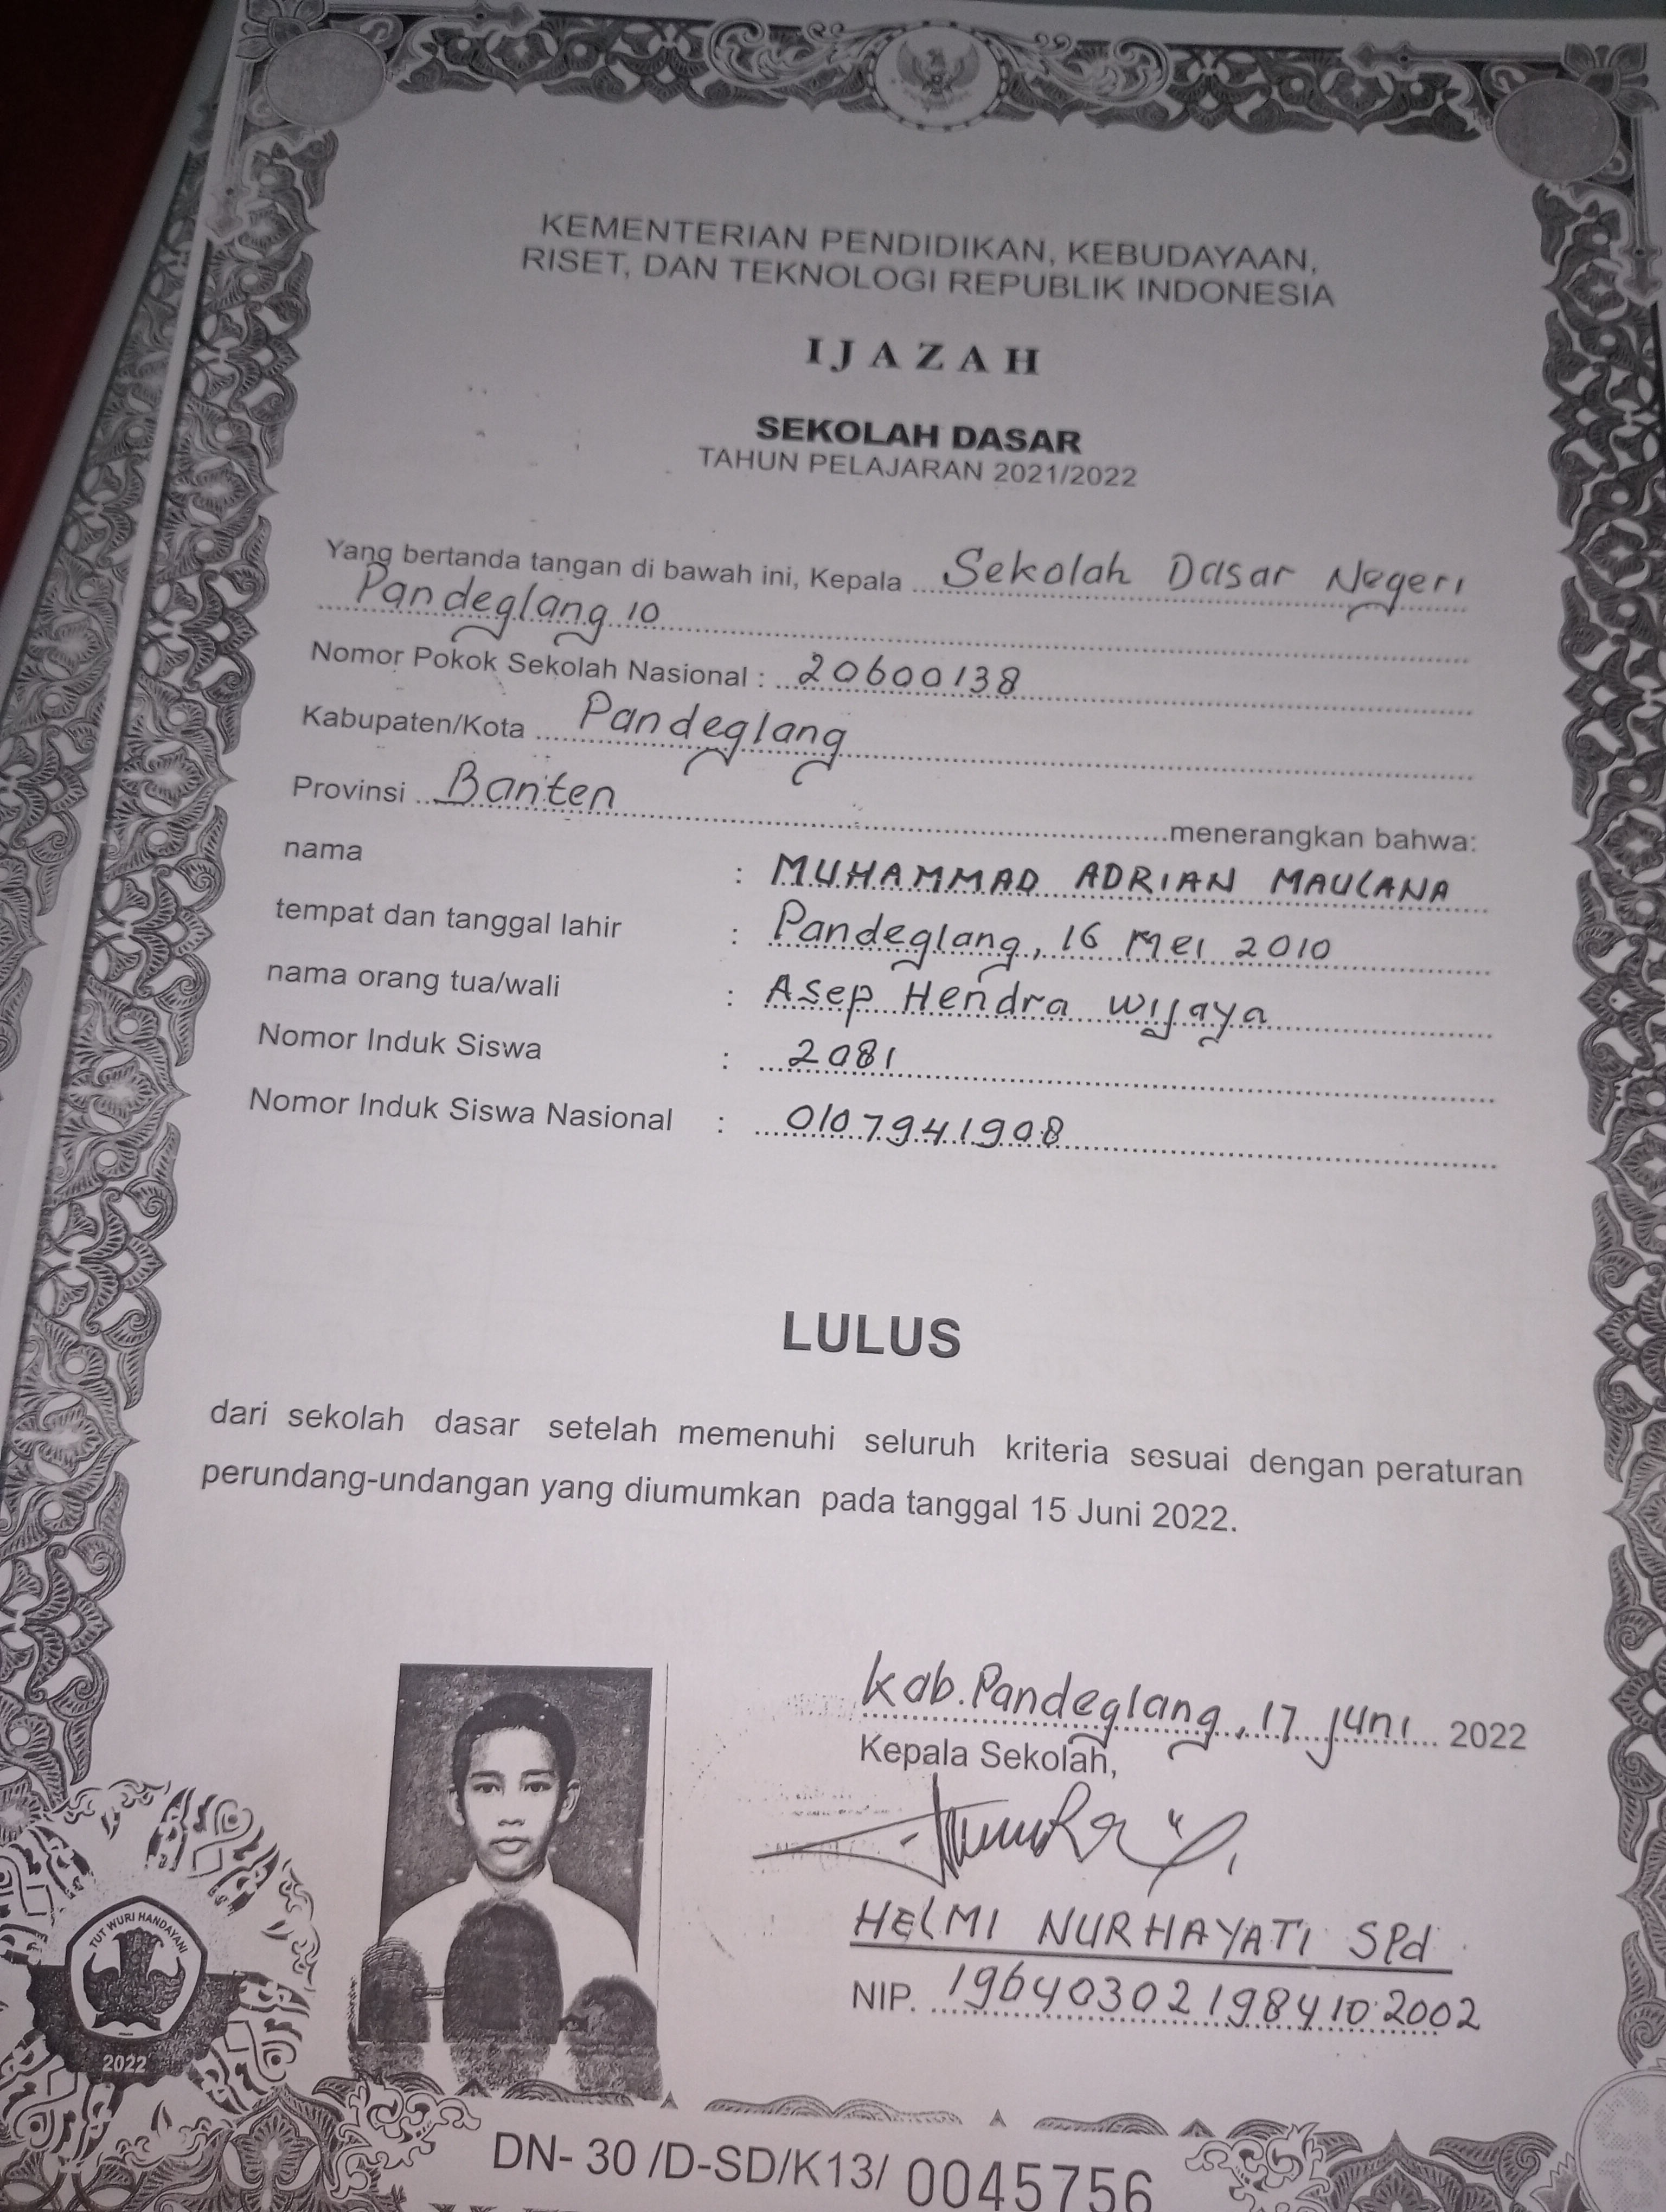 KEMENTERIAN PENDIDIKAN, KEBUDAYAAN,
RISET, DAN TEKNOLOGI REPUBLIK INDONESIA
IJAZAH
SEKOLAH DASAR
TAHUN PELAJARAN 2021/2022
Yang bertanda tangan di bawah ini, Kepala Sekolah Dasar Negeri
Pandeglang 10
Nomor Pokok Sekolah Nasional : 20600138
Kabupaten/Kota Pandeglang
Provinsi Banten menerangkan bahwa:
nama : MUHAMMAD ADRIAN MAULANA
tempat dan tanggal lahir : Pandeglang, 16 Mei 2010
nama orang tua/wali : Asep Hendra Wijaya
Nomor Induk Siswa : 2081
Nomor Induk Siswa Nasional : 0107941908
LULUS
dari sekolah dasar setelah memenuhi seluruh kriteria sesuai dengan peraturan
perundang-undangan yang diumumkan pada tanggal 15 Juni 2022.
Kab. Pandeglang, 17 Juni 2022
Kepala Sekolah,
HELMI NURHAYATI SPd
NIP. 196403021984102002
TUT WURI HANDAYANI
2022
DN- 30 /D-SD/K13/ 0045756